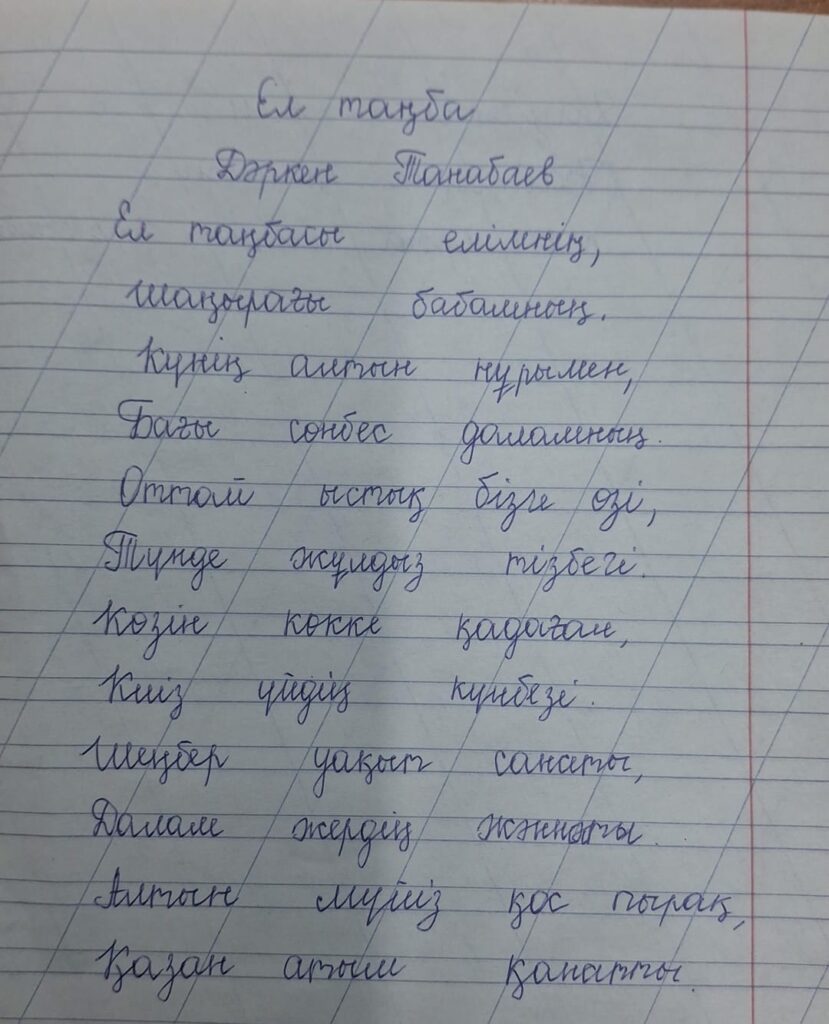 Ел таңба
Дәркен Танабаев
Ел таңбасы елімнің,
Шаңырағы бабамның.
Күнің алтын нұрымен,
Бағы сөнбес даламның.
Оттай ыстық бізге өзі,
Түнде жұлдыз тізбегі.
Көзін көкке қадаған,
Киіз үйдің күнбезі.
Шеңбер уақыт санаты,
Далам жердің жәннаты.
Алтын мүйіз қос пырақ,
Қазан атым қанатты.